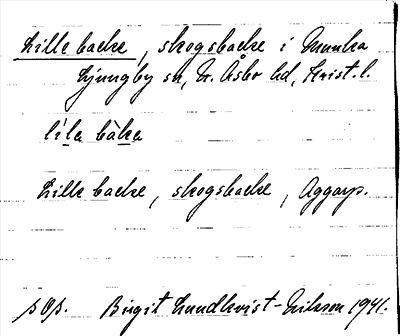 Lille backe, skogsbacke i Munka
Ljungby sn, N. Åsbo hd, Krist. l.
lila bàka
Lille backe, skogsbacke, Aggarp.
Birgit Lundkvist-Nilsson 1941.